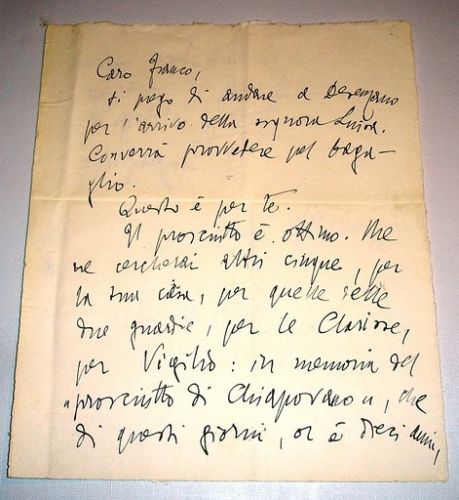 Caro Franco,
ti prego di andare a Desenzano
per l'arrivo della signora Luisa.
Converrà provvedere pel baga-
glio.
Questo è per te.
Il prosciutto è ottimo. Me
ne cercherai altri cinque, per
la tua casa, per quelle delle
due guardie, per le Clarisse,
per Virgilio: in memoria del
"prosciutto di Chiapovano", che
di questi giorni, or è dieci anni,